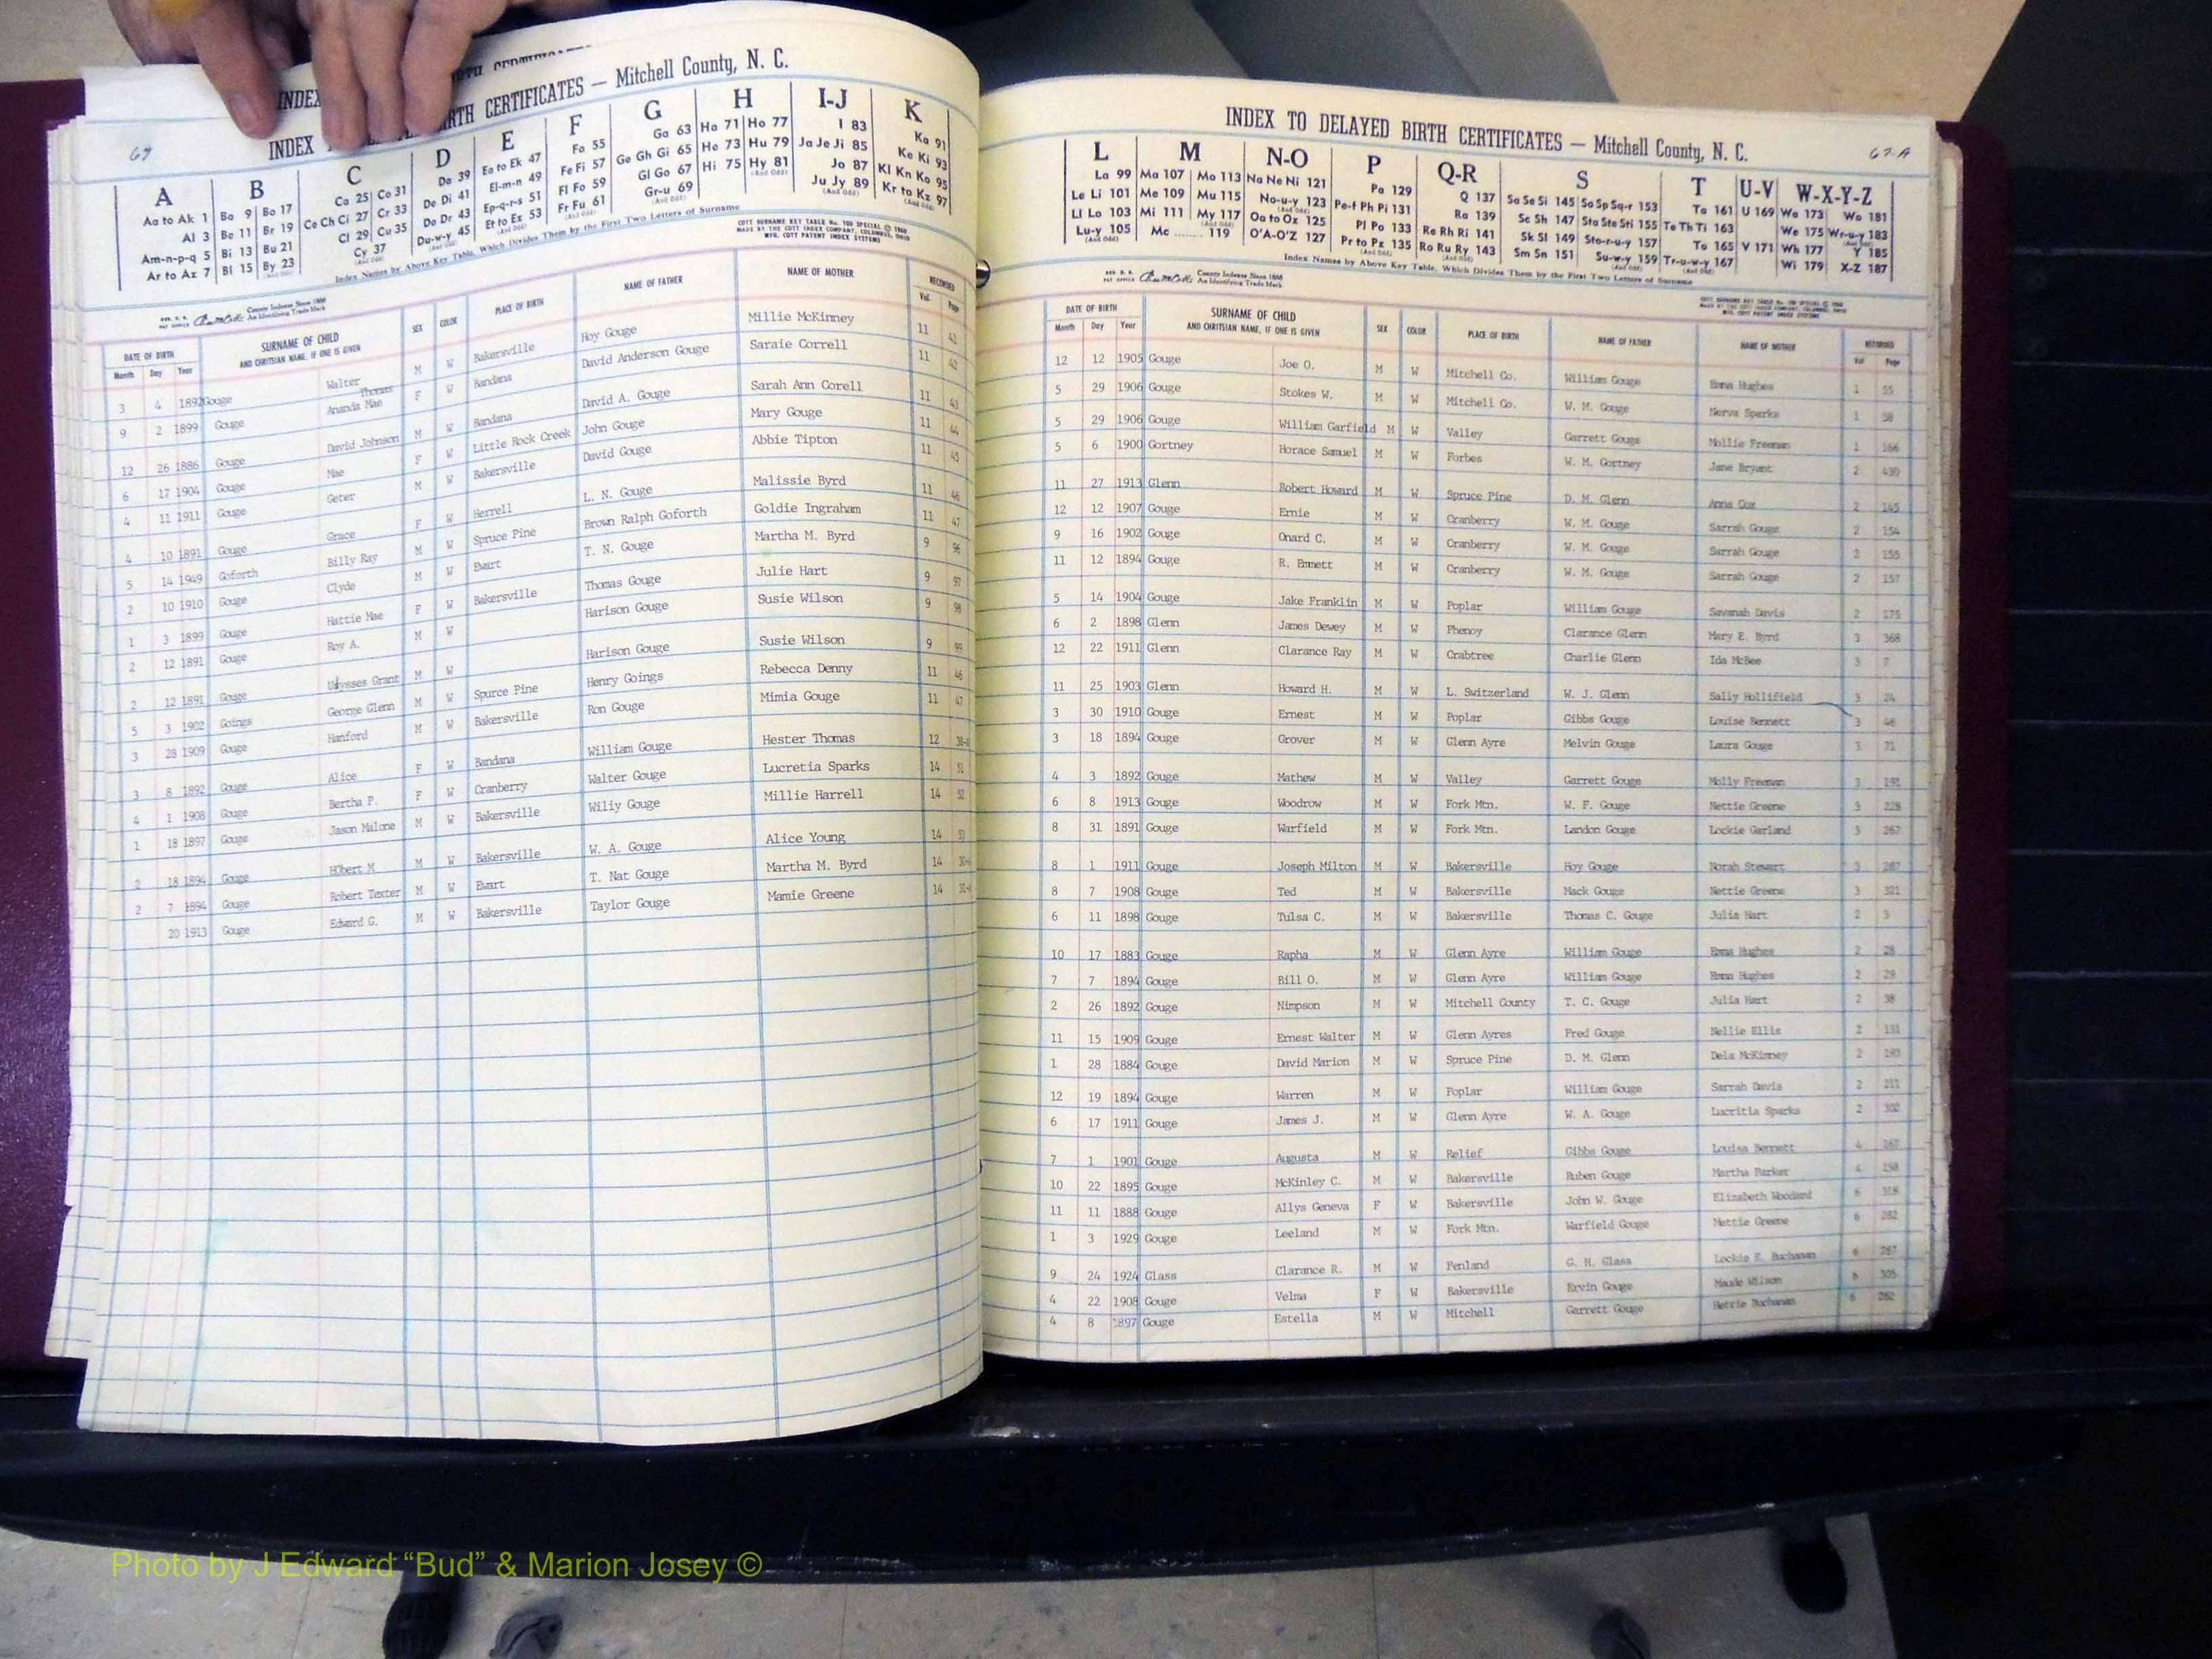 INDEX
BIRTH CERTIFICATES
67
INDEX BIRTH CERTIFICATES — Mitchell County, N. C.
A B C D E F G H I-J K
Aa to Ak 1 Ba 9 Bo 17 Ca 25 Co 31 Da 39 Ea to Ek 47 Fa 55 Ga 63 Ha 71 Ho 77 I 83 Ka 91
Al 3 Be 11 Br 19 Ce Ch Ci 27 Cr 33 De Di 41 El-m-n 49 Fe Fi 57 Ge Gh Gi 65 He 73 Hu 79 Ja Je Ji 85 Ke Ki 93
Am-n-p-q 5 Bi 13 Bu 21 Cl 29 Cu 35 Do Dr 43 Ep-q-r-s 51 Fl Fo 59 Gl Go 67 Hi 75 Hy 81 Jo 87 Kl Kn Ko 95
Ar to Az 7 Bl 15 By 23 Cy 37 Du-w-y 45 Et to Ez 53 Fr Fu 61 Gr-u 69 Ju Jy 89 Kr to Kz 97
Index Names by Above Key Table, Which Divides Them by the First Two Letters of Surname
County Indexes Since 1888
An Identifying Trade Mark
DATE OF BIRTH SURNAME OF CHILD SEX COLOR PLACE OF BIRTH NAME OF FATHER NAME OF MOTHER RECORDED
Month Day Year AND CHRITSIAN NAME, IF ONE IS GIVEN Vol. Page
3 4 1892 Gouge Walter Thomas M W Bakersville Hoy Gouge Millie McKinney 11 41
9 2 1899 Gouge Ananda Mae F W Bandana David Anderson Gouge Saraie Correll 11 42
12 26 1886 Gouge David Johnson M W Bandana David A. Gouge Sarah Ann Corell 11 43
6 17 1904 Gouge Mae F W Little Rock Creek John Gouge Mary Gouge 11 44
4 11 1911 Gouge Geter M W Bakersville David Gouge Abbie Tipton 11 45
4 10 1891 Gouge Grace F W Herrell L. N. Gouge Malissie Byrd 11 46
5 14 1949 Goforth Billy Ray M W Spruce Pine Brown Ralph Goforth Goldie Ingraham 11 47
2 10 1910 Gouge Clyde M W Ewart T. N. Gouge Martha M. Byrd 9 96
1 3 1899 Gouge Hattie Mae F W Bakersville Thomas Gouge Julie Hart 9 97
2 12 1891 Gouge Roy A. M W Harison Gouge Susie Wilson 9 98
2 12 1891 Gouge Ulysses Grant M W Harison Gouge Susie Wilson 9 99
5 3 1902 Goings George Glenn M W Spurce Pine Henry Goings Rebecca Denny 11 46
3 28 1909 Gouge Hanford M W Bakersville Ron Gouge Mimia Gouge 11 47
3 8 1892 Gouge Alice F W Bandana William Gouge Hester Thomas 12
4 1 1908 Gouge Bertha P. F W Cranberry Walter Gouge Lucretia Sparks 14 51
1 18 1897 Gouge Jason Malone M W Bakersville Wiliy Gouge Millie Harrell 14 52
2 18 1894 Gouge HUbert M M W Bakersville W. A. Gouge Alice Young 14 53
2 7 1894 Gouge Robert Texter M W Ewart T. Nat Gouge Martha M. Byrd 14
20 1913 Gouge Edward G. M W Bakersville Taylor Gouge Mamie Greene 14
67-A
INDEX TO DELAYED BIRTH CERTIFICATES — Mitchell County, N. C.
L M N-O P Q-R S T U-V W-X-Y-Z
La 99 Ma 107 Mo 113 Na Ne Ni 121 Pa 129 Q 137 Sa Se Si 145 So Sp Sq-r 153 Ta 161 U 169 Wa 173 Wo 181
Le Li 101 Me 109 Mu 115 No-u-y 123 Pe-f Ph Pi 131 Ra 139 Sc Sh 147 Sta Ste Sti 155 Te Th Ti 163 We 175 Wr-u-y 183
Ll Lo 103 Mi 111 My 117 Oa to Oz 125 Pl Po 133 Re Rh Ri 141 Sk Sl 149 Sto-r-u-y 157 To 165 V 171 Wh 177 Y 185
Lu-y 105 Mc 119 O'A-O'Z 127 Pr to Pz 135 Ro Ru Ry 143 Sm Sn 151 Su-w-y 159 Tr-u-w-y 167 Wi 179 X-Z 187
Index Names by Above Key Table, Which Divides Them by the First Two Letters of Surname
County Indexes Since 1888
An Identifying Trade Mark
DATE OF BIRTH SURNAME OF CHILD SEX COLOR PLACE OF BIRTH NAME OF FATHER NAME OF MOTHER RECORDED
Month Day Year AND CHRITSIAN NAME, IF ONE IS GIVEN Vol Page
12 12 1905 Gouge Joe O. M W Mitchell Co. William Gouge Emma Hughes 1 55
5 29 1906 Gouge Stokes W. M W Mitchell Co. W. M. Gouge Nerva Sparks 1 58
5 29 1906 Gouge William Garfield M W Valley Garrett Gouge Mollie Freeman 1 166
5 6 1900 Gortney Horace Samuel M W Forbes W. M. Gortney Jane Bryant 2 430
11 27 1913 Glenn Robert Howard M W Spruce Pine D. M. Glenn Anna Cox 2 145
12 12 1907 Gouge Ernie M W Cranberry W. M. Gouge Sarrah Gouge 2 154
9 16 1902 Gouge Onard C. M W Cranberry W. M. Gouge Sarrah Gouge 2 155
11 12 1894 Gouge R. Emmett M W Cranberry W. M. Gouge Sarrah Gouge 2 157
5 14 1904 Gouge Jake Franklin M W Poplar William Gouge Savanah Davis 2 175
6 2 1898 Glenn James Dewey M W Phenoy Clarance Glenn Mary E. Byrd 3 368
12 22 1911 Glenn Clarance Ray M W Crabtree Charlie Glenn Ida McBee 3 7
11 25 1903 Glenn Howard H. M W L. Switzerland W. J. Glenn Sally Hollifield 3 24
3 30 1910 Gouge Ernest M W Poplar Gibbs Gouge Louise Bennett 3 46
3 18 1894 Gouge Grover M W Glenn Ayre Melvin Gouge Laura Gouge 3 71
4 3 1892 Gouge Mathew M W Valley Garrett Gouge Molly Freeman 3 191
6 8 1913 Gouge Woodrow M W Fork Mtn. W. F. Gouge Nettie Greene 3 228
8 31 1891 Gouge Warfield M W Fork Mtn. Landon Gouge Lockie Garland 3 267
8 1 1911 Gouge Joseph Milton M W Bakersville Hoy Gouge Norah Stewart 3 287
8 7 1908 Gouge Ted M W Bakersville Mack Gouge Nettie Greene 3 321
6 11 1898 Gouge Tulsa C. M W Bakersville Thomas C. Gouge Julia Hart 2 3
10 17 1883 Gouge Rapha M W Glenn Ayre William Gouge Emma Hughes 2 28
7 7 1894 Gouge Bill O. M W Glenn Ayre William Gouge Emma Hughes 2 29
2 26 1892 Gouge Nimpson M W Mitchell County T. C. Gouge Julia Hart 2 38
11 15 1909 Gouge Ernest Walter M W Glenn Ayres Fred Gouge Nellie Ellis 2 131
1 28 1884 Gouge David Marion M W Spruce Pine D. M. Glenn Dela McKinney 2 193
12 19 1894 Gouge Warren M W Poplar William Gouge Sarrah Davis 2
6 17 1911 Gouge James J. M W Glenn Ayre W. A. Gouge Lucritia Sparks 2 302
7 1 1901 Gouge Augusta M W Relief Gibbs Gouge Louisa Bennett 4
10 22 1895 Gouge McKinley C. M W Bakersville Ruben Gouge Martha Parker 4
11 11 1888 Gouge Allys Geneva F W Bakersville John W. Gouge Elizabeth Woodard 6
1 3 1929 Gouge Leeland M W Fork Mtn. Warfield Gouge Nettie Greene 6 282
9 24 1924 Glass Clarance R. M W Penland G. H. Glass Lockie E. Buchanan 6 287
4 22 1908 Gouge Velma F W Bakersville Ervin Gouge Maude Wilson 6 305
4 8 1897 Gouge Estella M W Mitchell Garrett Gouge Hettie Buchanan 6 282
Photo by J Edward “Bud” & Marion Josey ©